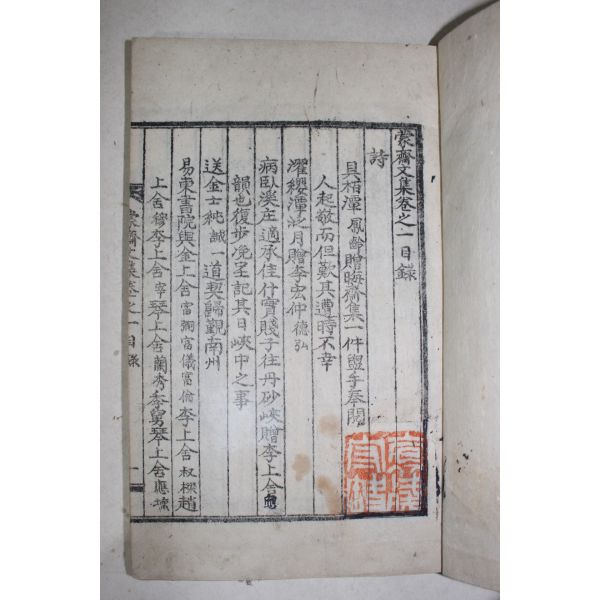 蒙齋文集卷之一目錄
詩
具栢潭鳳齡贈晦齋集一件盥手奉閱
人起敬而但歎其遭時不幸
濯纓潭泛月贈李宏仲德弘
病臥溪庄適承佳什實賤子往丹砂峽贈李上舍
韻也復步浼呈記其日峽中之事
送金士純誠一道契歸覲南州
易東書院與金上舍富弼富儀富倫李上舍叔樑趙
上舍穆李上舍宰琴上舍蘭秀季舅琴上舍應壎
蒙齋文集卷之一目錄
一